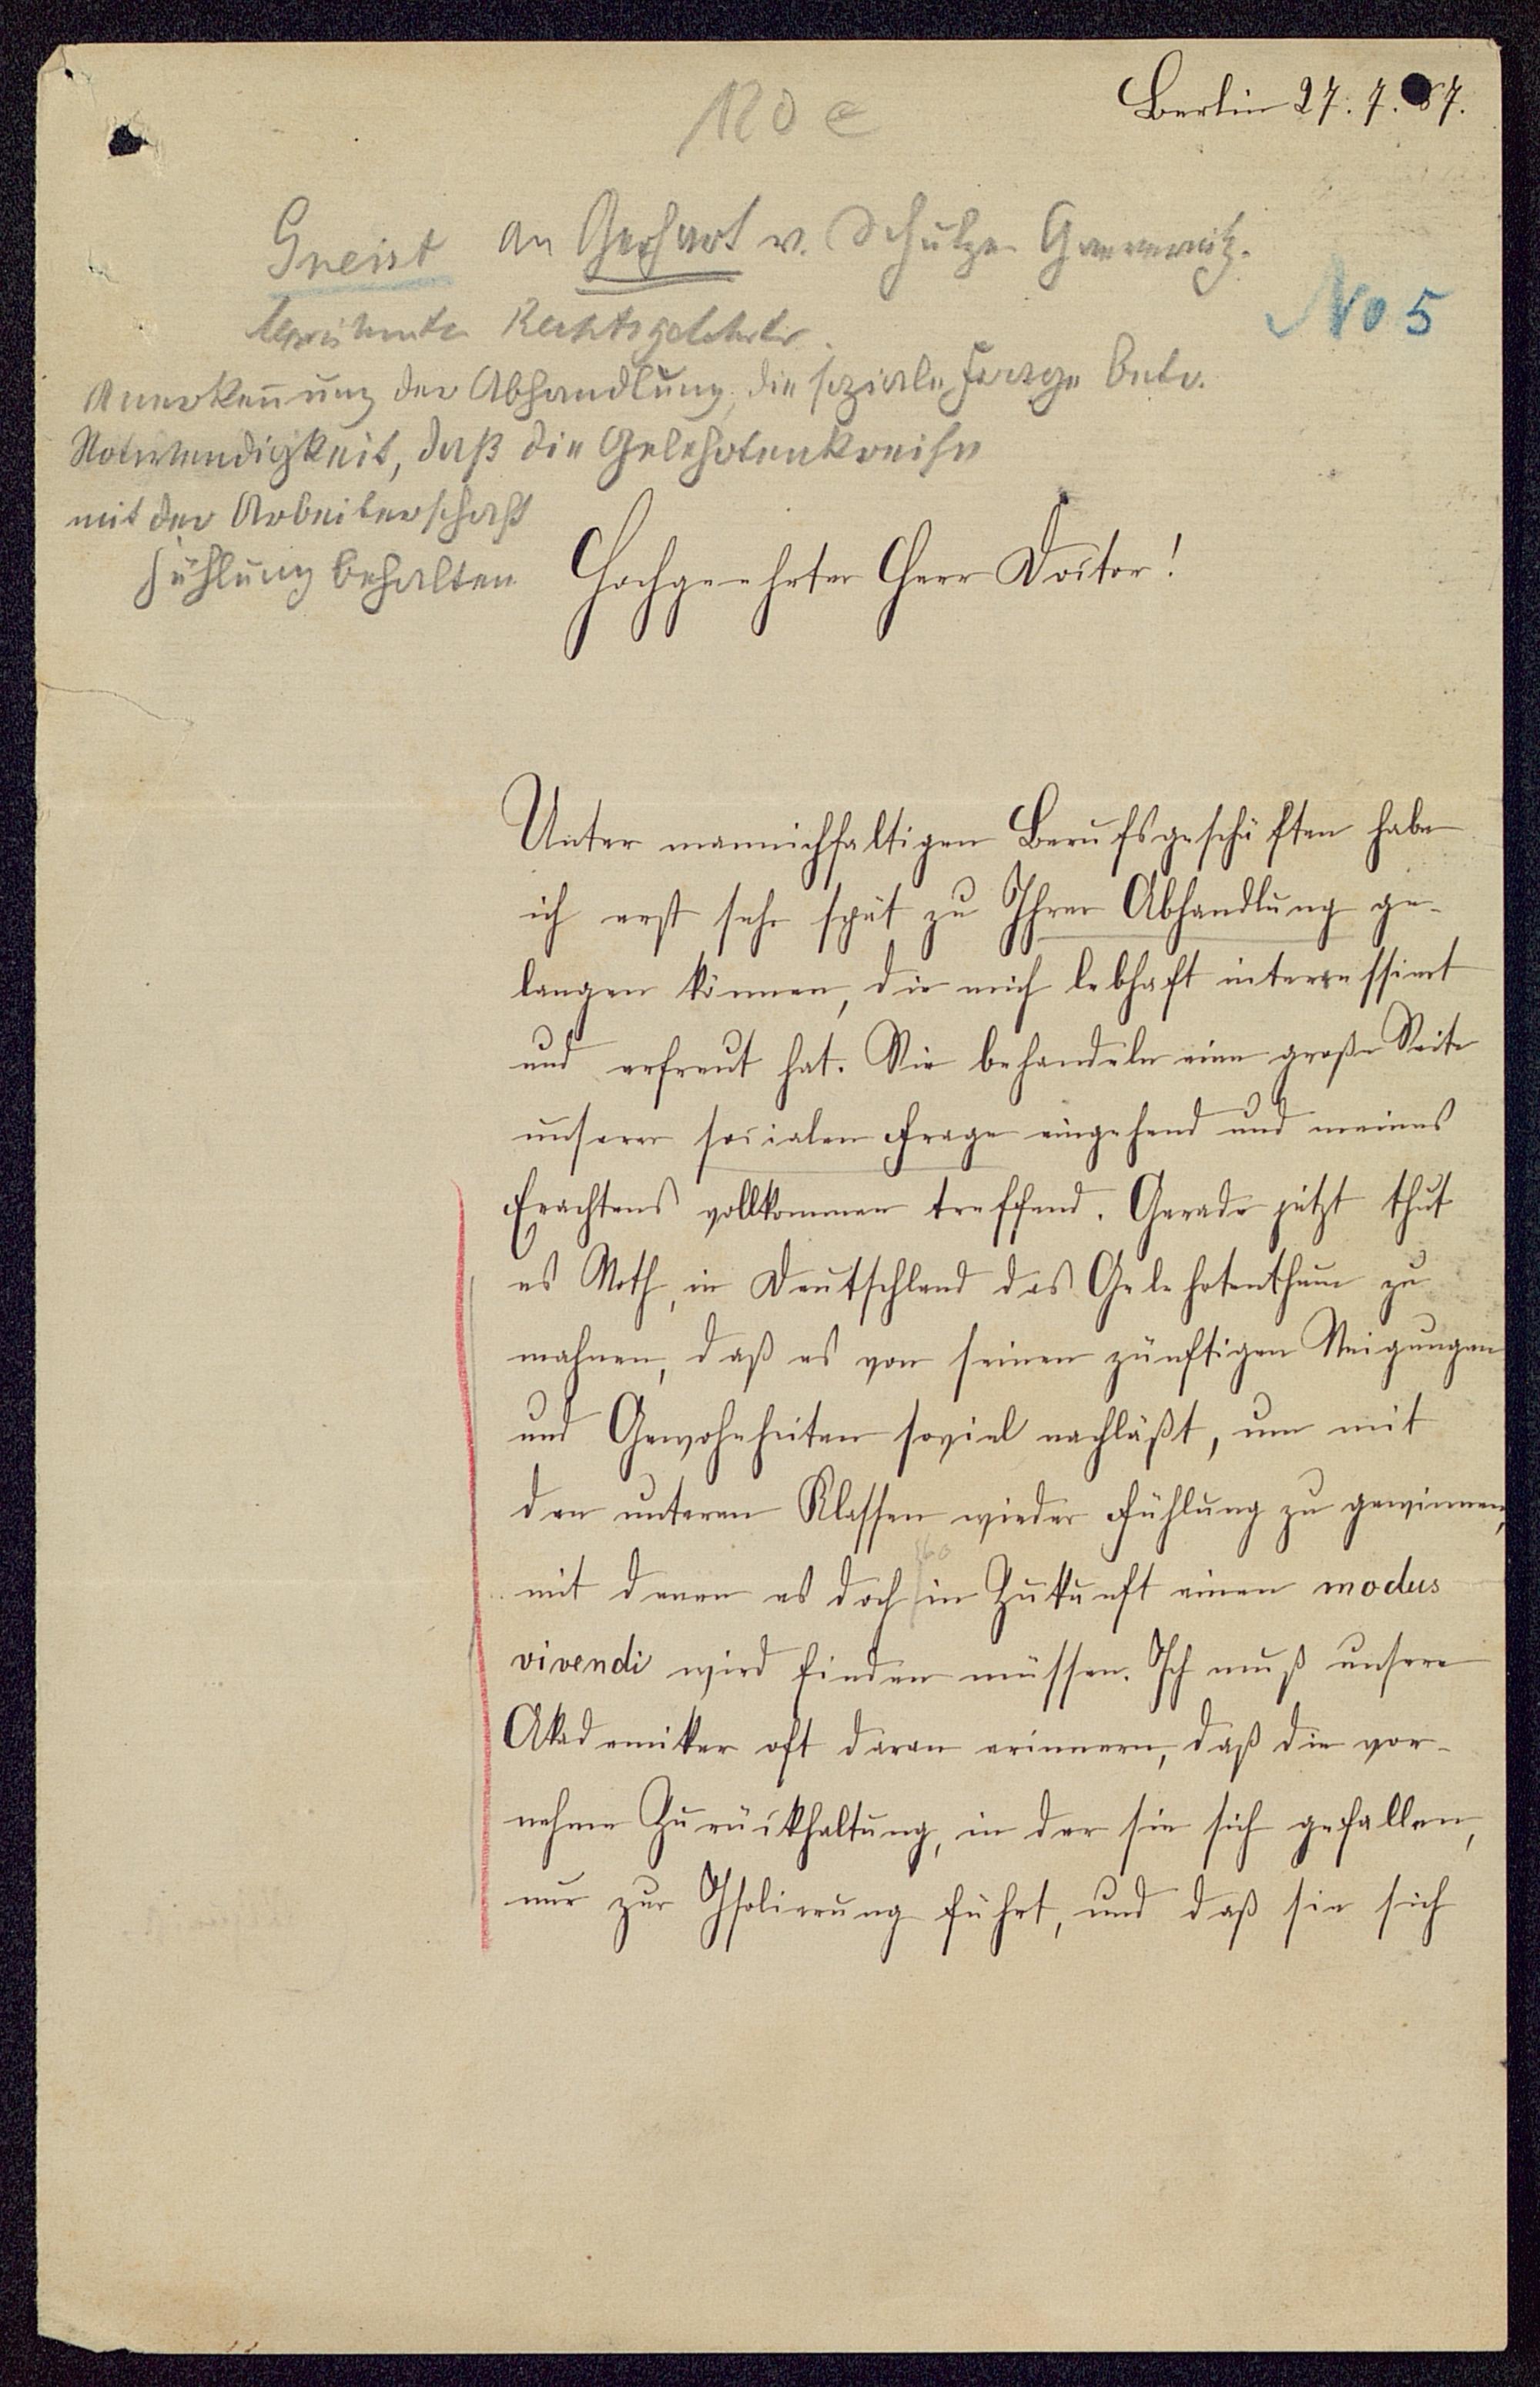 Berlin 27. 7. 87.
120 e
Gneist an Gerhart v. Schulze Gaevernitz.
berühmter Rechtsgelehrter.
No 5
Anerkennung der Abhandlung, die soziale Frage betr.
Notwendigkeit, daß die Gelehrtenkreise
mit der Arbeiterschaft
Fühlung behalten
Hochgeehrter Herr Doctor!
Unter mannichfaltigen Berufsgeschäften habe
ich erst sehr spät zu Ihrer Abhandlung ge-
langen können, die mich lebhaft interessirt
und erfreut hat. Sie behandeln eine große Seite
unserer socialen Frage eingehend und meines
Erachtens vollkommen treffend. Gerade jetzt thut
es Noth, in Deutschland das Gelehrtenthum zu
mahnen, daß es von seinen zünftigen Neigungen
und Gewohnheiten soviel nachläßt, um mit
den unteren Klassen wieder Fühlung zu gewinnen,
mit denen es doch in Zukunft einen modus
vivendi wird finden müssen. Ich muß unsere
Akademiker oft daran erinnern, daß die vor-
nehme Zurückhaltung, in der sie sich gefallen,
nur zur Isolierung führt, und daß sie sich